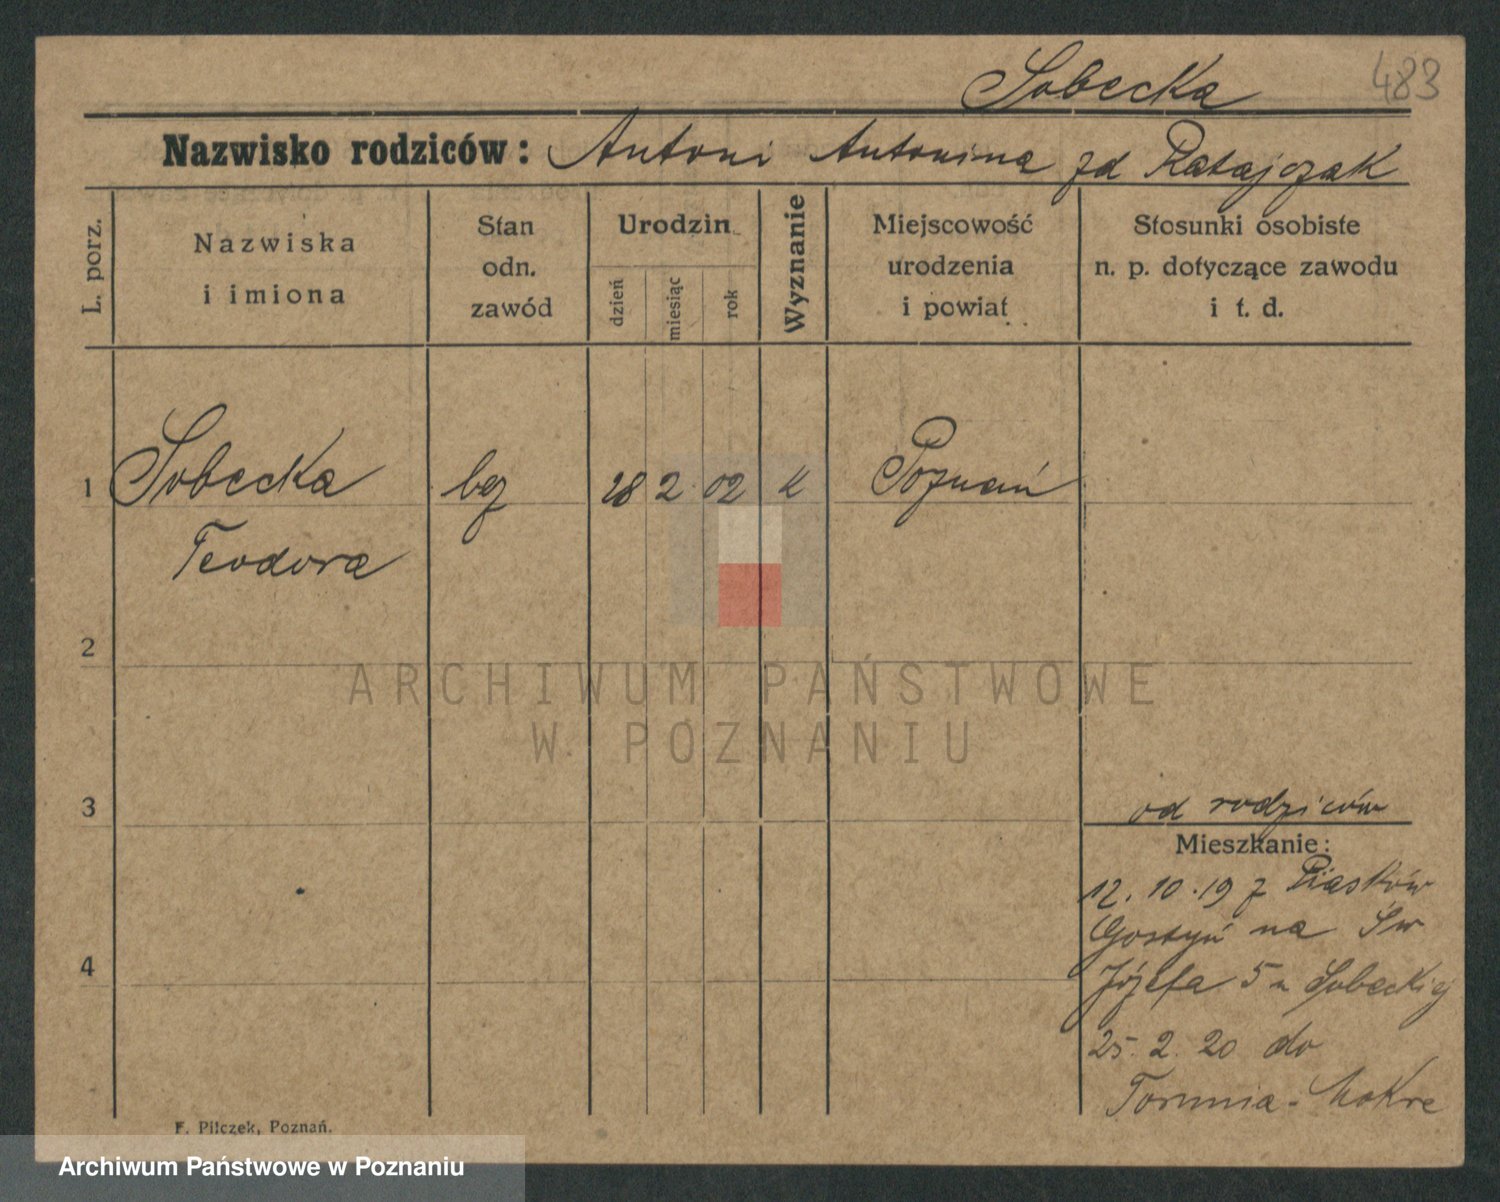 Sobecka 483
Nazwisko rodziców: Antoni Antonina zd Ratajczak
L. porz.
Nazwiska
i imiona
Stan
odn.
zawód
Urodzin
dzień
miesiąc
rok
Wyznanie
Miejscowość
urodzenia
i powiat
Stosunki osobiste
n. p. dotyczące zawodu
i t. d.
1 Sobecka bez 28 2 02 K Poznań
Teodora
2
ARCHIWUM PAŃSTWOWE
W POZNANIU
3
od rodziców
Mieszkanie:
12. 10. 19 z Piasków
Gostyń na Św
4
Józefa 5 u Sobeckiej
25. 2. 20 do
Torunia - Mokre
F. Pilczek, Poznań.
Archiwum Państwowe w Poznaniu